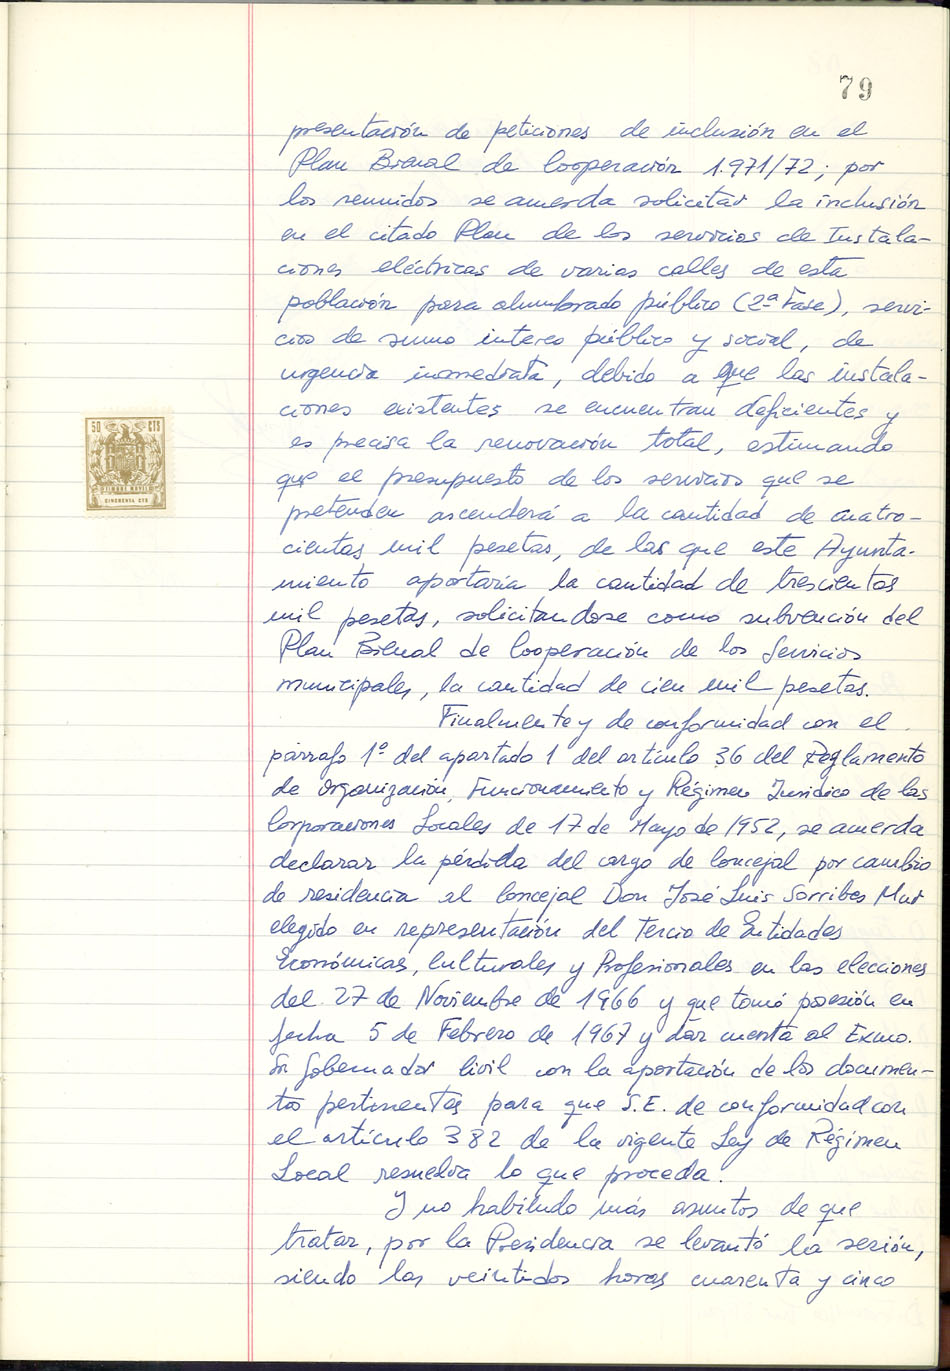 79
presentación de peticiones de inclusión en el
Plan Bienal de Cooperación 1.971/72; por
los reunidos se acuerda solicitar la inclusión
en el citado Plan de los servicios de Instala-
ciones eléctricas de varias calles de esta
población para alumbrado público (2ª Fase), servi-
cios de sumo interes público y social, de
urgencia inmediata, debido a que las instala-
ciones existentes se encuentran deficientes y
es precisa la renovación total, estimando
que el presupuesto de los servicios que se
pretenden ascenderá a la cantidad de cuatro-
cientas mil pesetas, de las que este Ayunta-
miento aportaría la cantidad de trescientas
mil pesetas, solicitandose como subvención del
Plan Bienal de Cooperación de los Servicios
municipales, la cantidad de cien mil pesetas.
Finalmente y de conformidad con el
párrafo 1º del apartado 1 del artículo 36 del Reglamento
de Organización, Funcionamiento y Régimen Jurídico de las
Corporaciones Locales de 17 de Mayo de 1952, se acuerda
declarar la pérdida del cargo de Concejal por cambio
de residencia al Concejal Don José Luis Sorribes Mut
elegido en representación del Tercio de Entidades
Económicas, Culturales y Profesionales en las elecciones
del 27 de Noviembre de 1966 y que tomó posesión en
fecha 5 de Febrero de 1967 y dar cuenta al Exmo.
Sr Gobernador Civil con la aportación de los documen-
tos pertinentes para que S.E. de conformidad con
el artículo 382 de la vigente Ley de Régimen
Local resuelva lo que proceda.
Y no habiendo más asuntos de que
tratar, por la Presidencia se levantó la sesión,
siendo las veintidos horas cuarenta y cinco
50 CTS
TIMBRE MOVIL
CINCUENTA CTS